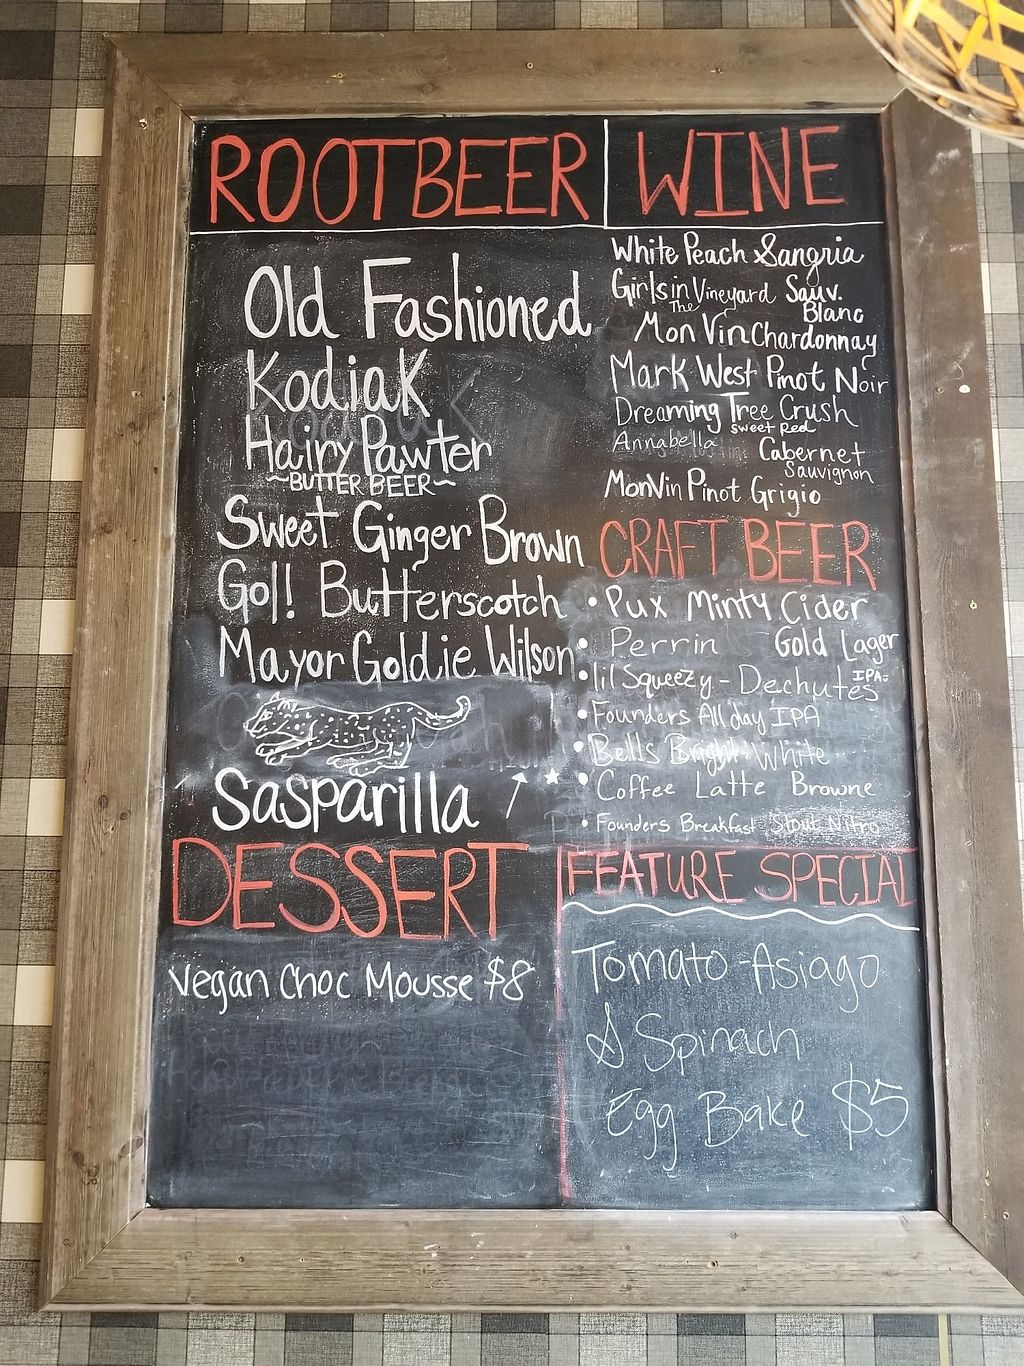 ROOTBEER
Old Fashioned
Kodiak
Hairy Pawter
~BUTTER BEER~
Sweet Ginger Brown
Gol! Butterscotch
Mayor Goldie Wilson
Sasparilla
WINE
White Peach Sangria
Girls in The Vineyard Sauv. Blanc
Mon Vin Chardonnay
Mark West Pinot Noir
Dreaming Tree Crush
Sweet Red
Annabella Cabernet
Sauvignon
MonVin Pinot Grigio
CRAFT BEER
• Pux Minty Cider
• Perrin Gold Lager
• lil Squeezy - Dechutes IPA
• Founders All day IPA
• Bells Bright White
• Coffee Latte Browne
• Founders Breakfast Stout Nitro
DESSERT
Vegan Choc Mousse $8
FEATURE SPECIAL
Tomato-Asiago
& Spinach
Egg Bake $5